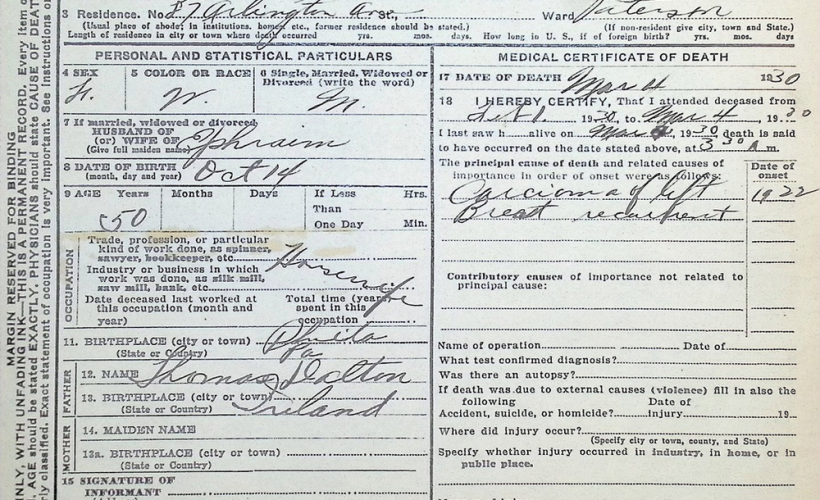 3 Residence. No. 57 Arlington Ave St., Ward Paterson
(Usual place of abode; in institutions, homes, etc., former residence should be stated.) (If non-resident give city, town and State.)
Length of residence in city or town where death occurred yrs. mos. days. How long in U. S., if of foreign birth? yrs. mos. days
PERSONAL AND STATISTICAL PARTICULARS
4 SEX 5 COLOR OR RACE 6 Single, Married, Widowed or
Divorced (write the word)
F. W. M.
7 If married, widowed or divorced
HUSBAND OF
(or) WIFE OF Ephraim
(Give full maiden name)
8 DATE OF BIRTH Oct 14
(month, day and year)
9 AGE Years Months Days If Less Hrs.
Than
50 One Day Min.
OCCUPATION
Trade, profession, or particular
kind of work done, as spinner,
sawyer, bookkeeper, etc. Housewife
Industry or business in which
work was done, as silk mill,
saw mill, bank, etc.
Date deceased last worked at Total time (years
this occupation (month and spent in this
year) occupation
11. BIRTHPLACE (city or town) Phila
(State or Country) Pa
FATHER
12. NAME Thomas Dalton
13. BIRTHPLACE (city or town)
(State or Country) Ireland
MOTHER
14. MAIDEN NAME
13a. BIRTHPLACE (city or town)
(State or Country)
15 SIGNATURE OF
INFORMANT
MEDICAL CERTIFICATE OF DEATH
17 DATE OF DEATH Mar 4 1930
18 I HEREBY CERTIFY, That I attended deceased from
1930, to Mar 4, 1930
I last saw h alive on Mar 4, 1930 death is said
to have occurred on the date stated above, at 3 30 A m.
The principal cause of death and related causes of Date of
importance in order of onset were as follows: onset
Carcioma of left 1922
Breast recurrent
Contributory causes of importance not related to
principal cause:
Name of operation Date of
What test confirmed diagnosis?
Was there an autopsy?
If death was due to external causes (violence) fill in also the
following Date of
Accident, suicide, or homicide? injury 19
Where did injury occur?
(Specify city or town, county, and State)
Specify whether injury occurred in industry, in home, or in
public place.
MARGIN RESERVED FOR BINDING
NLY, WITH UNFADING INK—THIS IS A PERMANENT RECORD. Every item o
. AGE should be stated EXACTLY. PHYSICIANS should state CAUSE OF DEAT
rly classified. Exact statement of occupation is very important. See instructions o